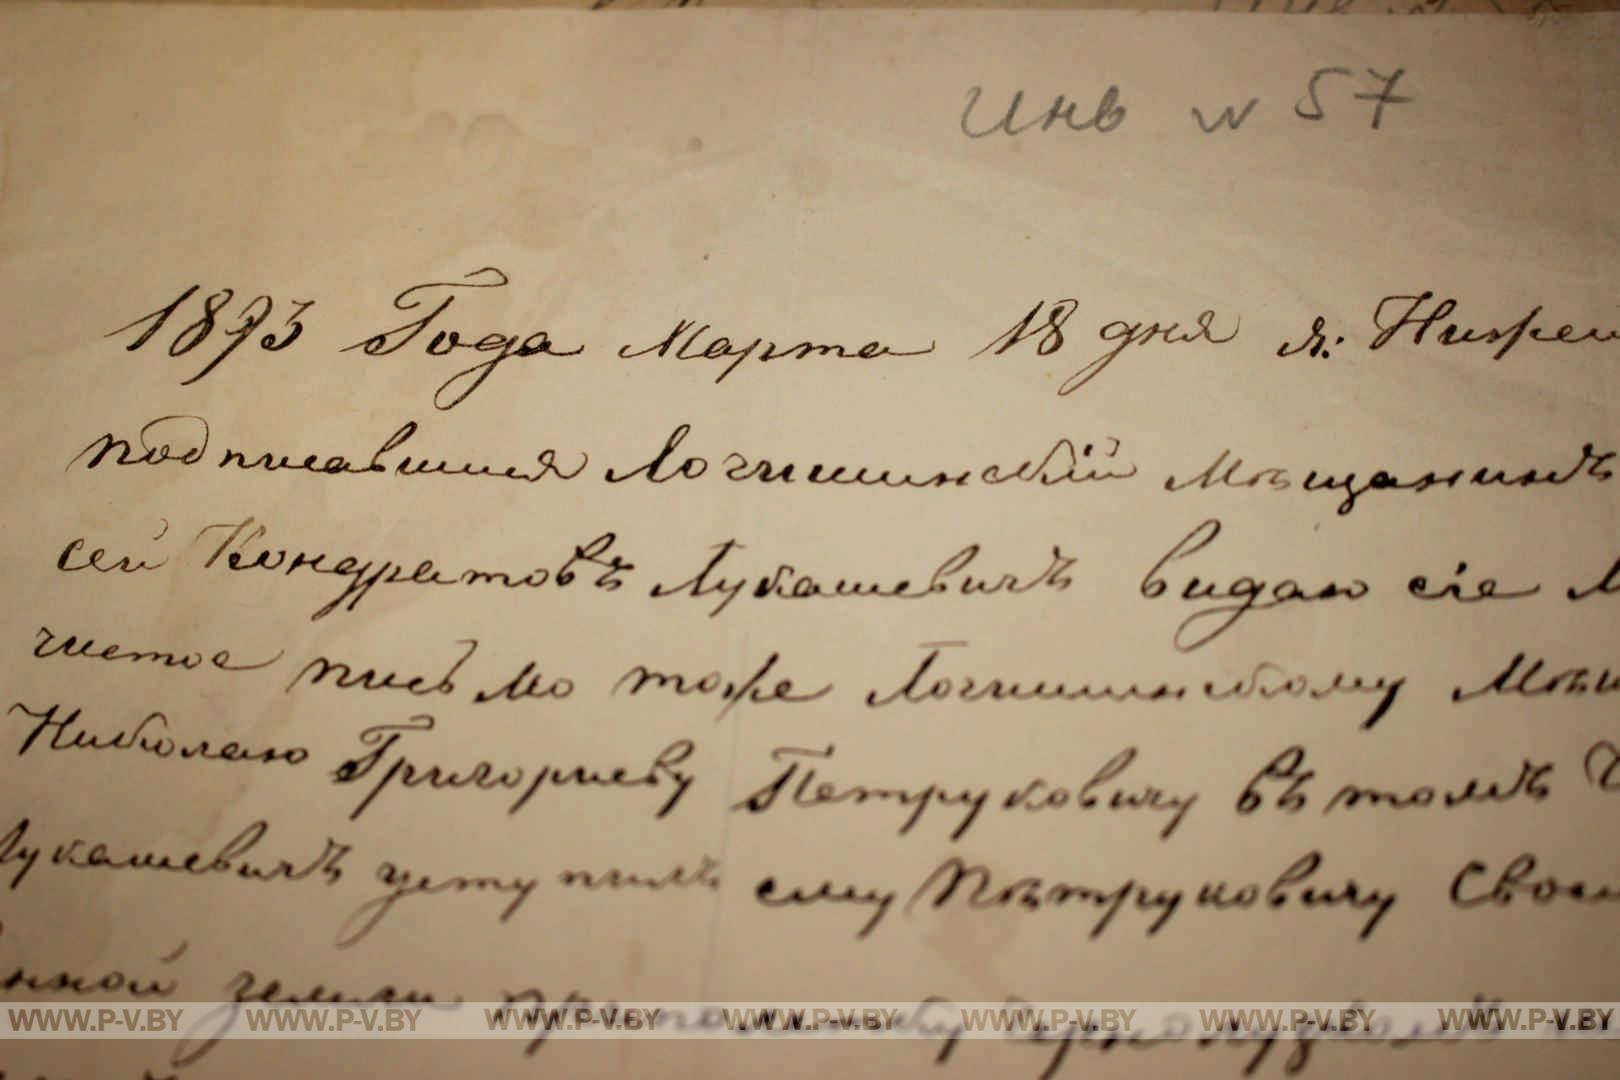 Инв № 57
1893 Года Марта 18 дня я: Ниже
подписавшийся Логишинскій Мѣщанинъ
сей Кондратовъ Лукашевичъ видаю сіе
чистое письмо тоже Логишинскому
Николаю Григориеву Петруковичу въ томъ
Лукашевичъ уступилъ ему Пѣтруковичу Свое
нной земли
WWW.P-V.BY WWW.P-V.BY WWW.P-V.BY WWW.P-V.BY WWW.P-V.BY WWW.P-V.BY WWW.P-V.BY